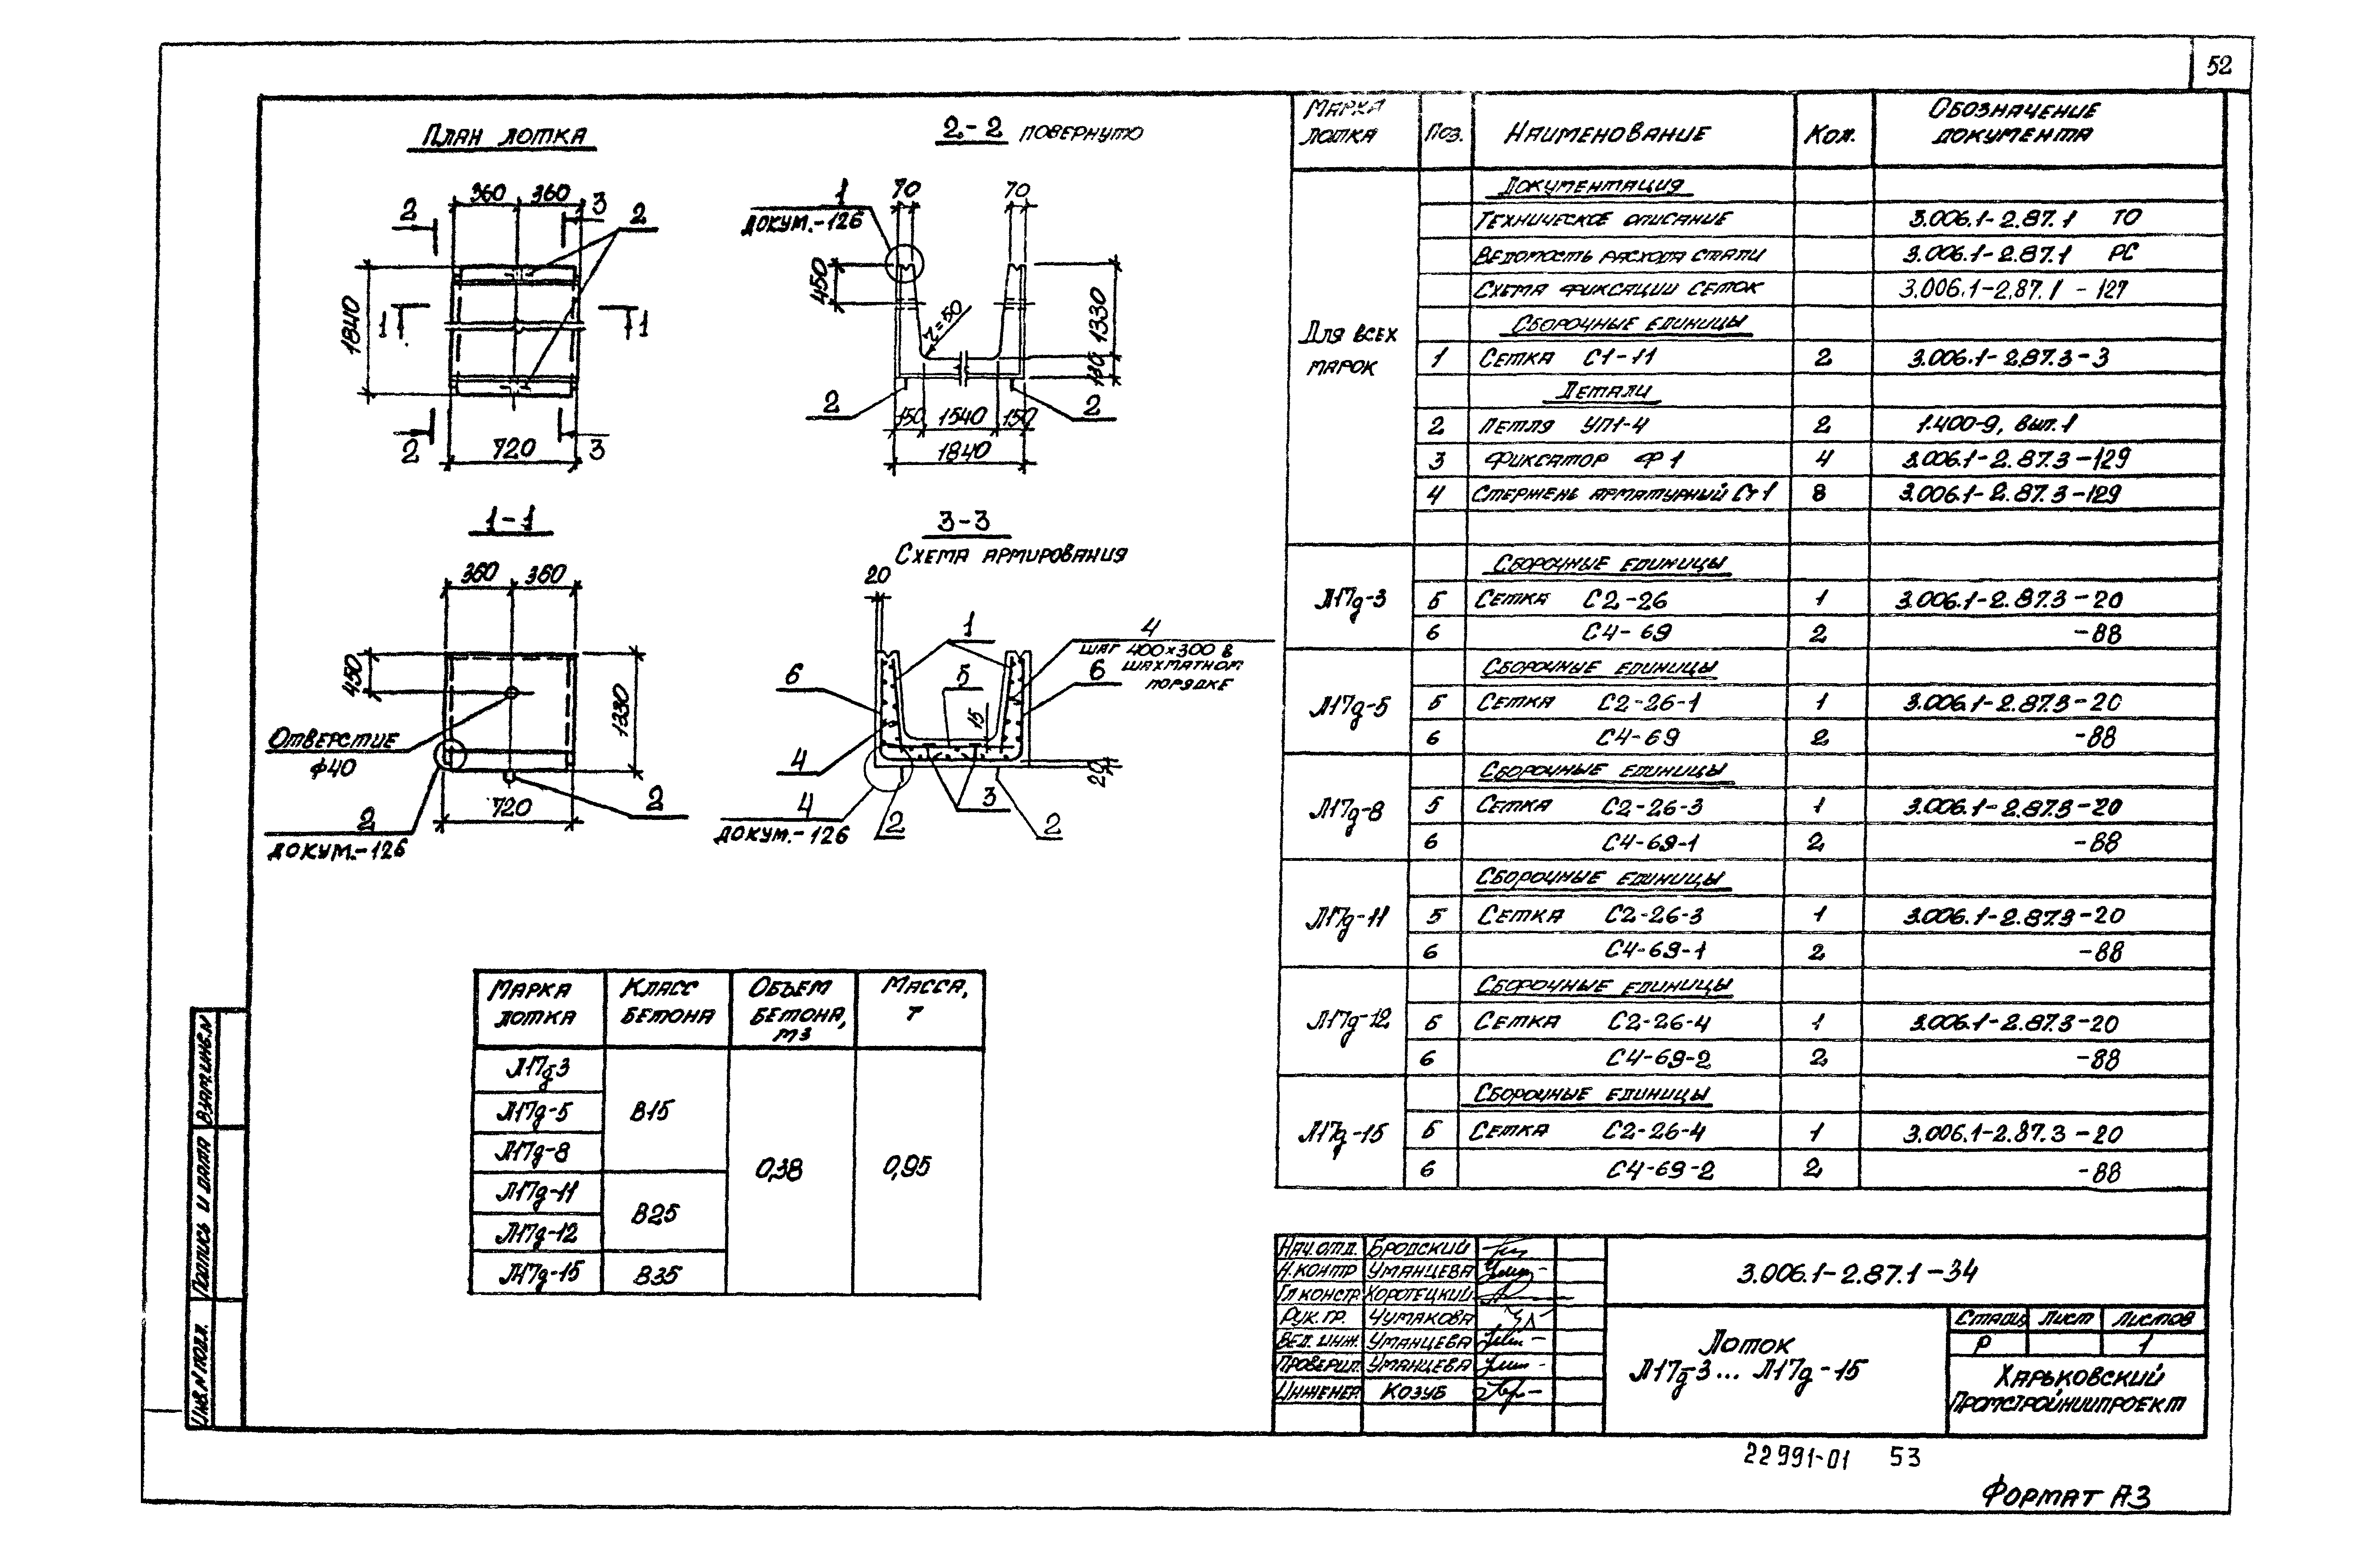 52
План лотка
360 360
2 3 2
1840
1 1
2 3
720
2-2 повернуто
1
докум.-126
70 70
450
r=50
1330
130
2 2
150 1540 150
1840
1-1
360 360
450
1330
Отверстие
ф40
2
докум.-126
720
2
3-3
Схема армирования
20
1
4
шаг 400x300 в
шахматном
порядке
6 5 6
15
4
20
4
докум.-126
3
2 2
Марка лотка Поз. Наименование Кол. Обозначение документа
Для всех марок
Документация
Техническое описание 3.006.1-2.87.1 ТО
Ведомость расхода стали 3.006.1-2.87.1 РС
Схема фиксации сеток 3.006.1-2.87.1 - 127
Сборочные единицы
1 Сетка С1-11 2 3.006.1-2.87.3-3
Детали
2 Петля УП1-4 2 1.400-9, вып.1
3 Фиксатор Ф1 4 3.006.1-2.87.3-129
4 Стержень арматурный Ст1 8 3.006.1-2.87.3-129
Л17д-3
Сборочные единицы
5 Сетка С2-26 1 3.006.1-2.87.3-20
6 С4-69 2 -88
Л17д-5
Сборочные единицы
5 Сетка С2-26-1 1 3.006.1-2.87.3-20
6 С4-69 2 -88
Л17д-8
Сборочные единицы
5 Сетка С2-26-3 1 3.006.1-2.87.3-20
6 С4-69-1 2 -88
Л17д-11
Сборочные единицы
5 Сетка С2-26-3 1 3.006.1-2.87.3-20
6 С4-69-1 2 -88
Л17д-12
Сборочные единицы
5 Сетка С2-26-4 1 3.006.1-2.87.3-20
6 С4-69-2 2 -88
Л17д-15
Сборочные единицы
5 Сетка С2-26-4 1 3.006.1-2.87.3-20
6 С4-69-2 2 -88
Марка лотка Класс бетона Объем бетона, м3 Масса, т
Л17д-3
Л17д-5 В15
Л17д-8 0,38 0,95
Л17д-11
В25
Л17д-12
Л17д-15 В35
Взам.инв.N
Подпись и дата
Инв.N подл.
Нач.отд. Бродский
Н.контр Уманцева
Гл.констр Коротецкий
Рук.гр. Чумакова
Вед.инж. Уманцева
Проверил Уманцева
Инженер Козуб
3.006.1-2.87.1-34
Лоток
Л17д-3... Л17д-15
Стадия Лист Листов
Р 1
Харьковский
Промстройниипроект
22991-01 53
Формат А3